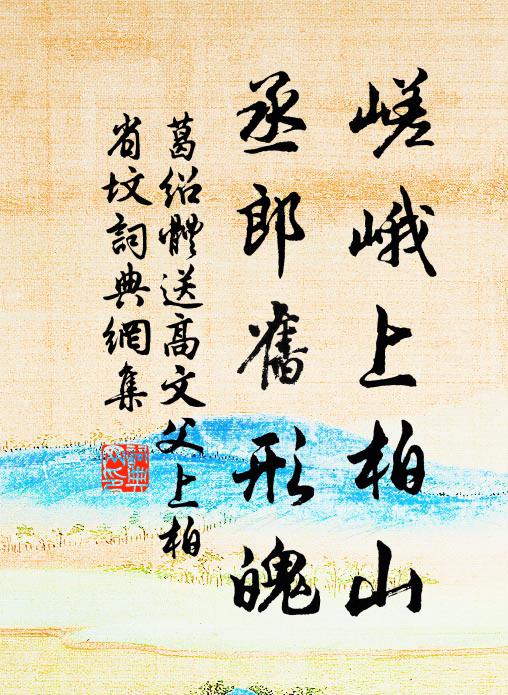 嵯峨上柏山
丞郎舊形魄
葛绍體送高文父上柏
省坟詞典網集